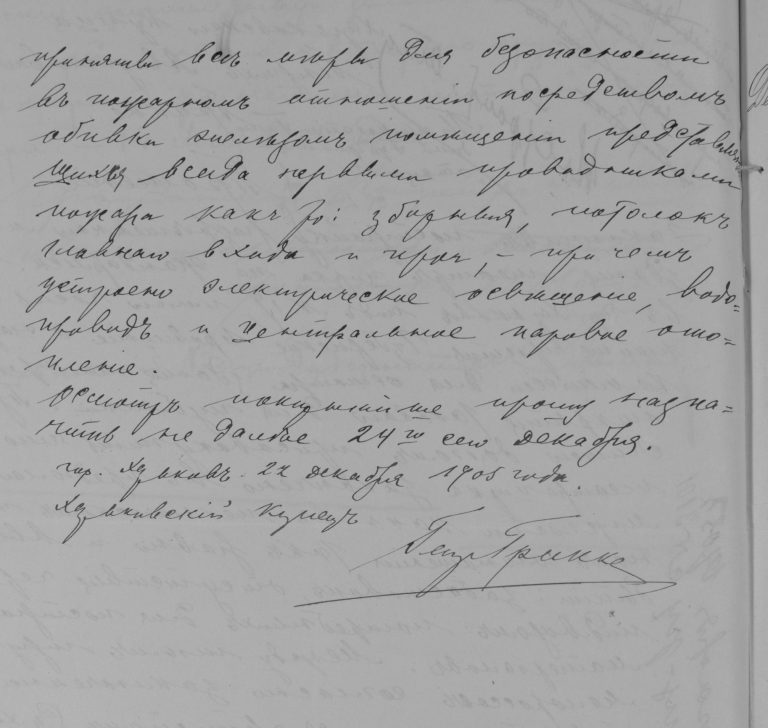 приняты всѣ мѣры для безопасности
въ пожарномъ отношеніи посредствомъ
обивки желѣзомъ помѣщеній представляю-
щихся всегда первыми проводниками
пожара какъ то: уборныя, потолокъ
главнаго входа и проч, – при чемъ
устроено электрическое освѣщеніе, водо=
проводъ и центральное паровое ото=
пленіе.
Осмотръ покорнѣйше прошу назна=
чить не далѣе 24го сего декабря.
гор. Харьковъ. 22 декабря 1905 года.
Харьковскій купецъ
Грикке